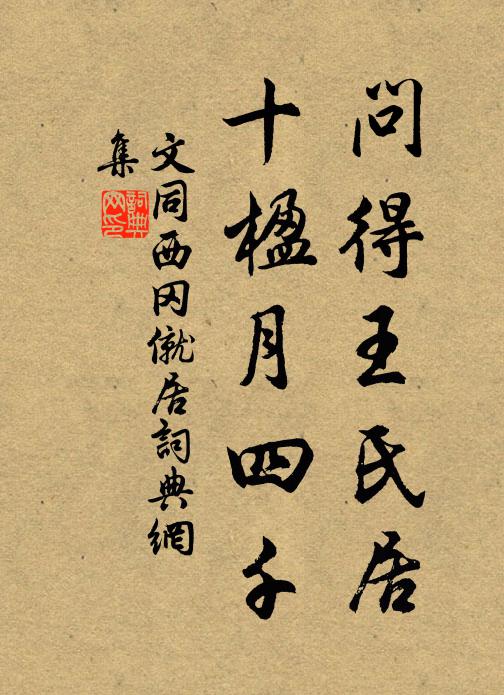 問得王氏居
十楹月四千
文同西冈僦居詞典網
集
詞典
网印